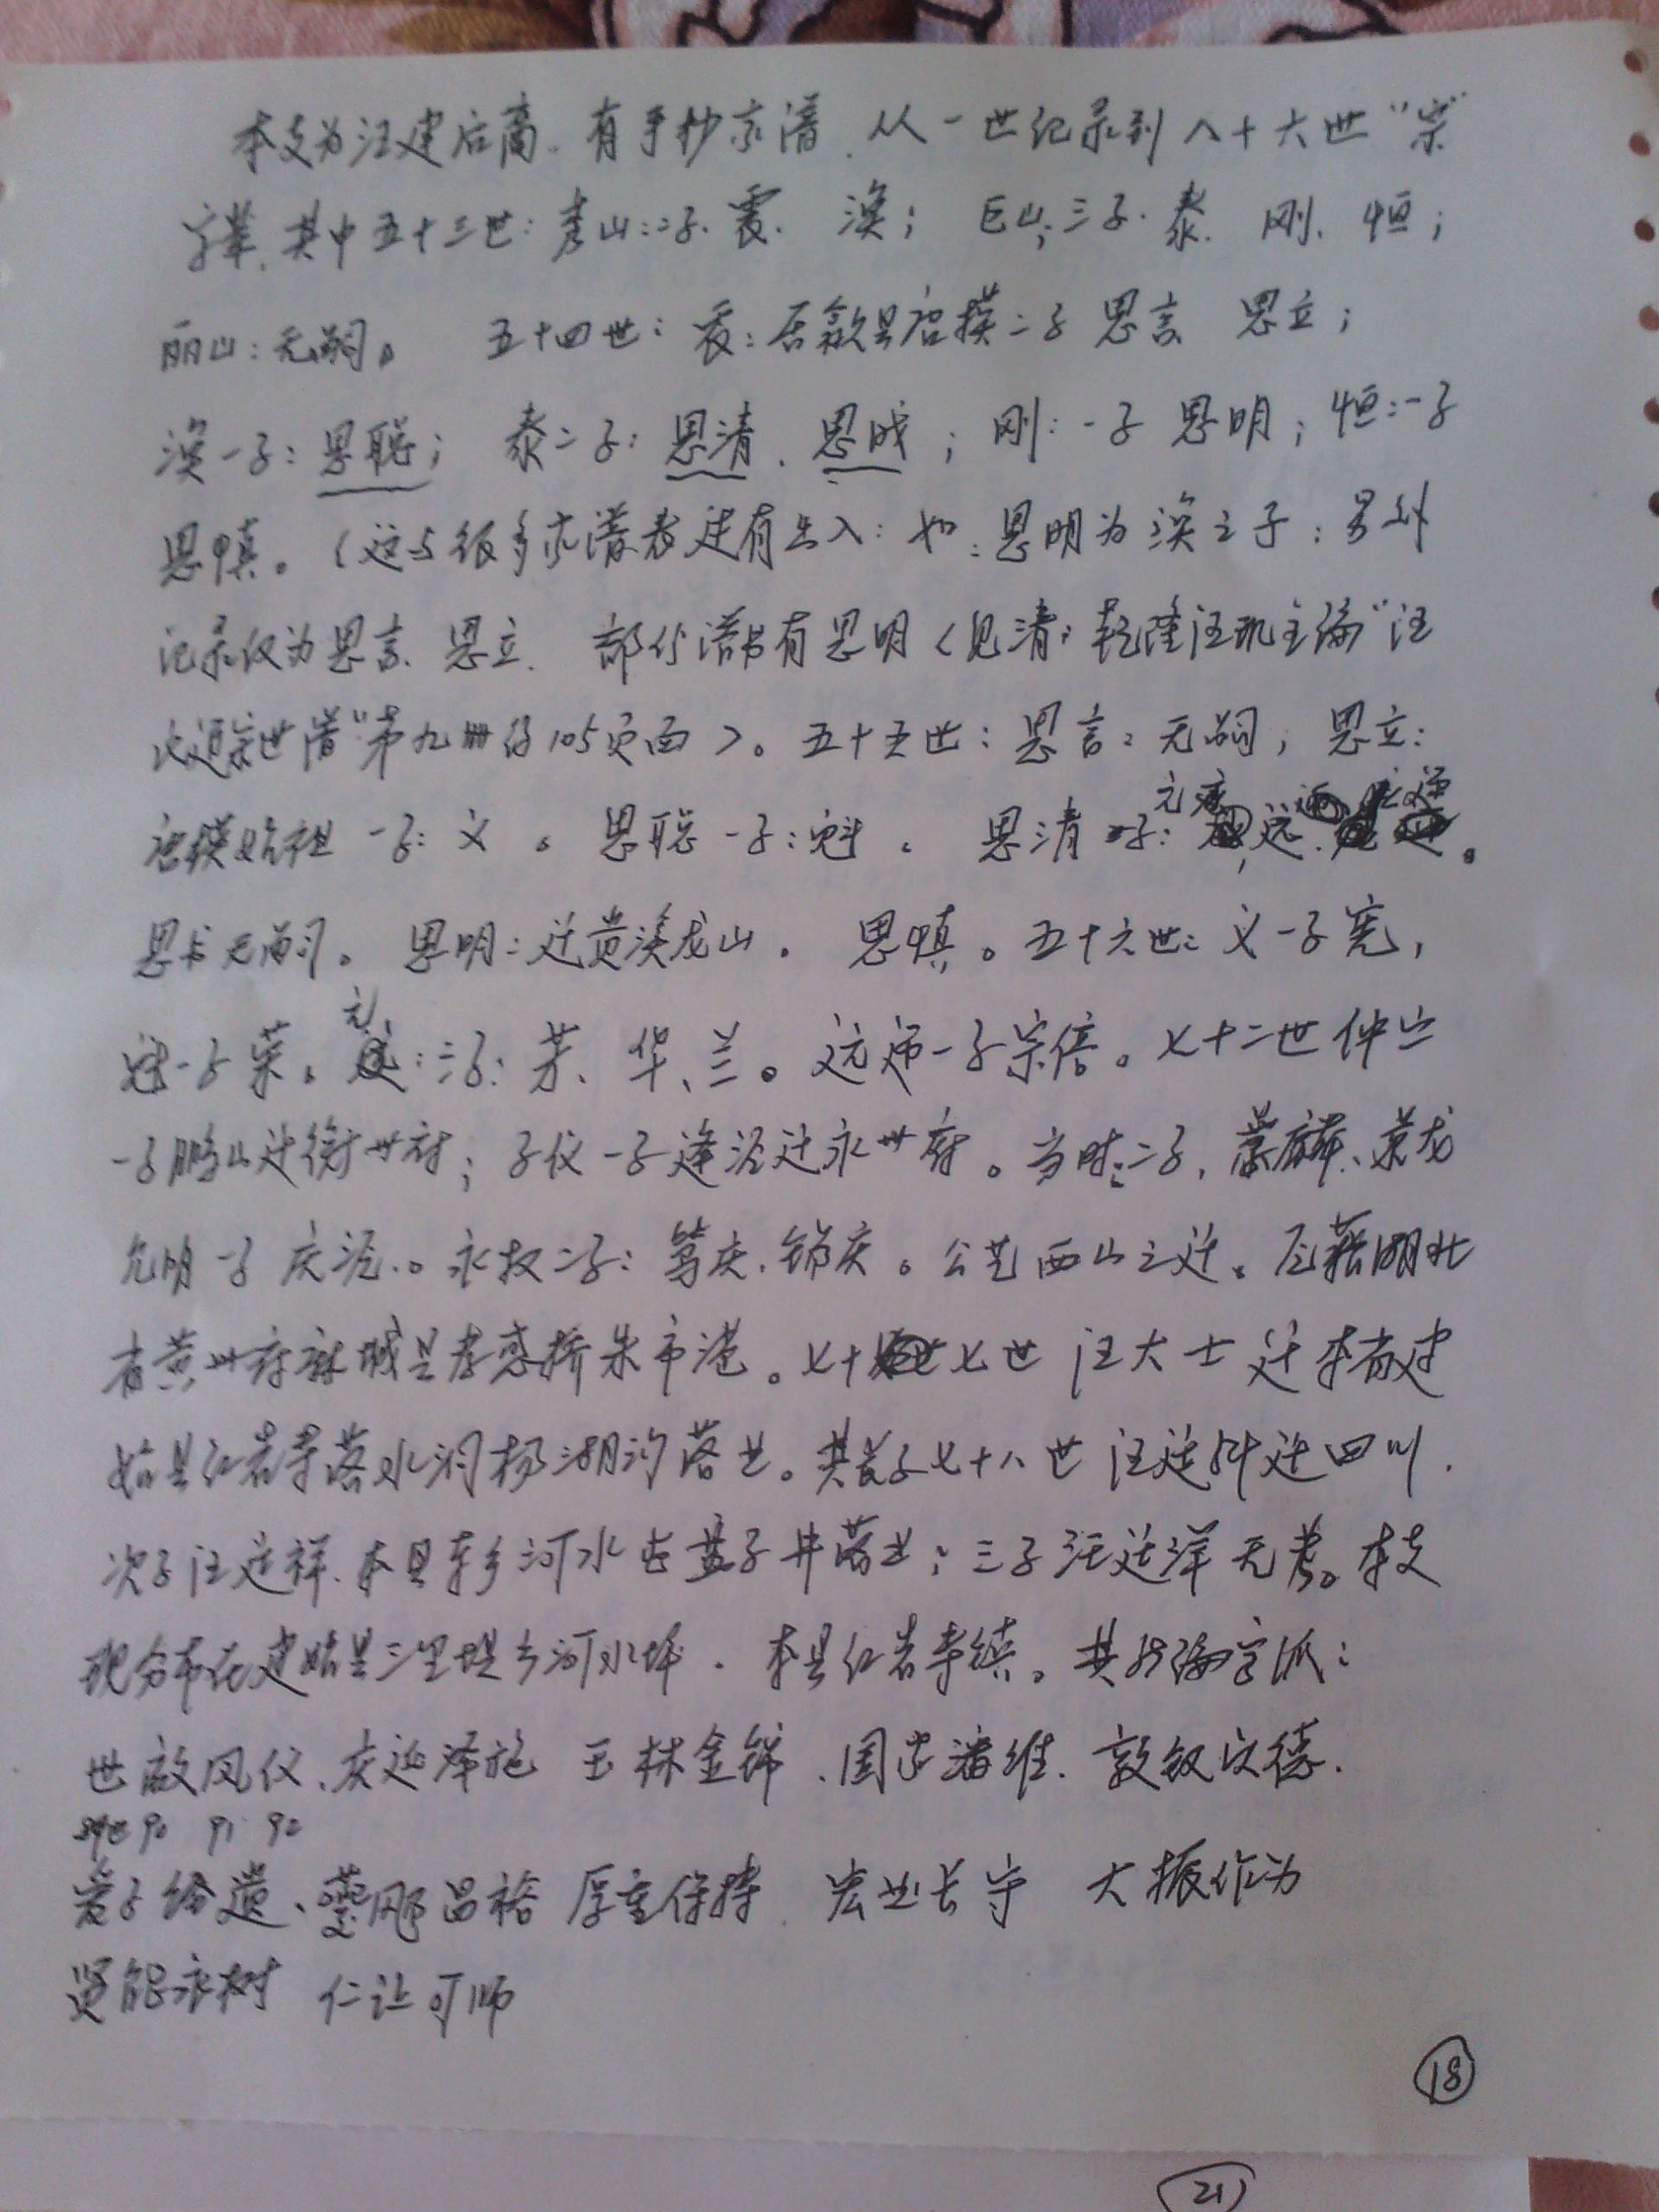 本支为汪建后裔.有手抄家谱.从一世纪录到八十六世"宗"
字辈.其中五十三世:秀山:二子.震.涣;巨山:三子.泰.刚.恒;
丽山:无嗣。五十四世:震:居歙县唐模二子思言 思立;
涣一子:思聪;泰二子:思清.思成;刚:一子思明;恒:一子
思慎。(这与很多家谱表述有出入:如:思明为涣之子:另外
记录仅为思言.思立.部份谱书有思明<见清·乾隆汪玑主编"汪
氏通宗世谱"第九册 105页面>。五十五世:思言:无嗣;思立:
唐模始祖一子:义。思聪一子:魁。思清 子:元 远.
思 无嗣。思明:迁贵溪龙山。思慎。五十六世:义一子宪,
魁一子荣。元 :三子:芳、华、兰。 一子宗信。七十二世仲
一子鹏山迁衡州府;子仪一子逢泾迁永州府。当时:二子,景麟、景龙
允明一子庆 。永放二子:笃庆.锦庆。公艺西山之迁。 籍湖北
省黄州府麻城县孝感 朱市港。七十七世汪大士迁本省建
始县红岩寺落水洞杨湖沟落业。其长子七十八世汪廷 迁四川.
次子汪廷祥.本县东乡河水 盐子井落业;三子汪廷洋无考。本支
现分布在建始县三里堤乡河水坪.本县红岩寺镇。共 编字派:
世啟风仪、庆延泽施 玉林金锦、国家藩维.敦叙以德.
 90 91 92
 子 遗、 昌裕 厚重保持.宏业长守 大振作为
贤能永树 仁让可师
18
21